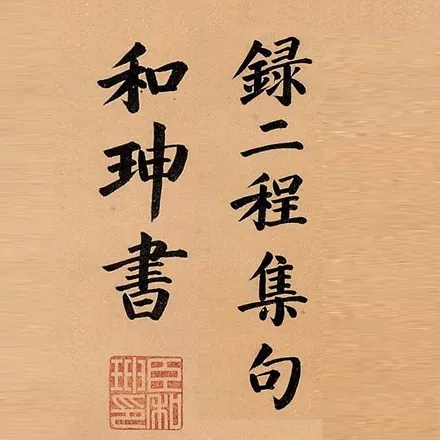 録二程集句
和珅書
臣和珅印